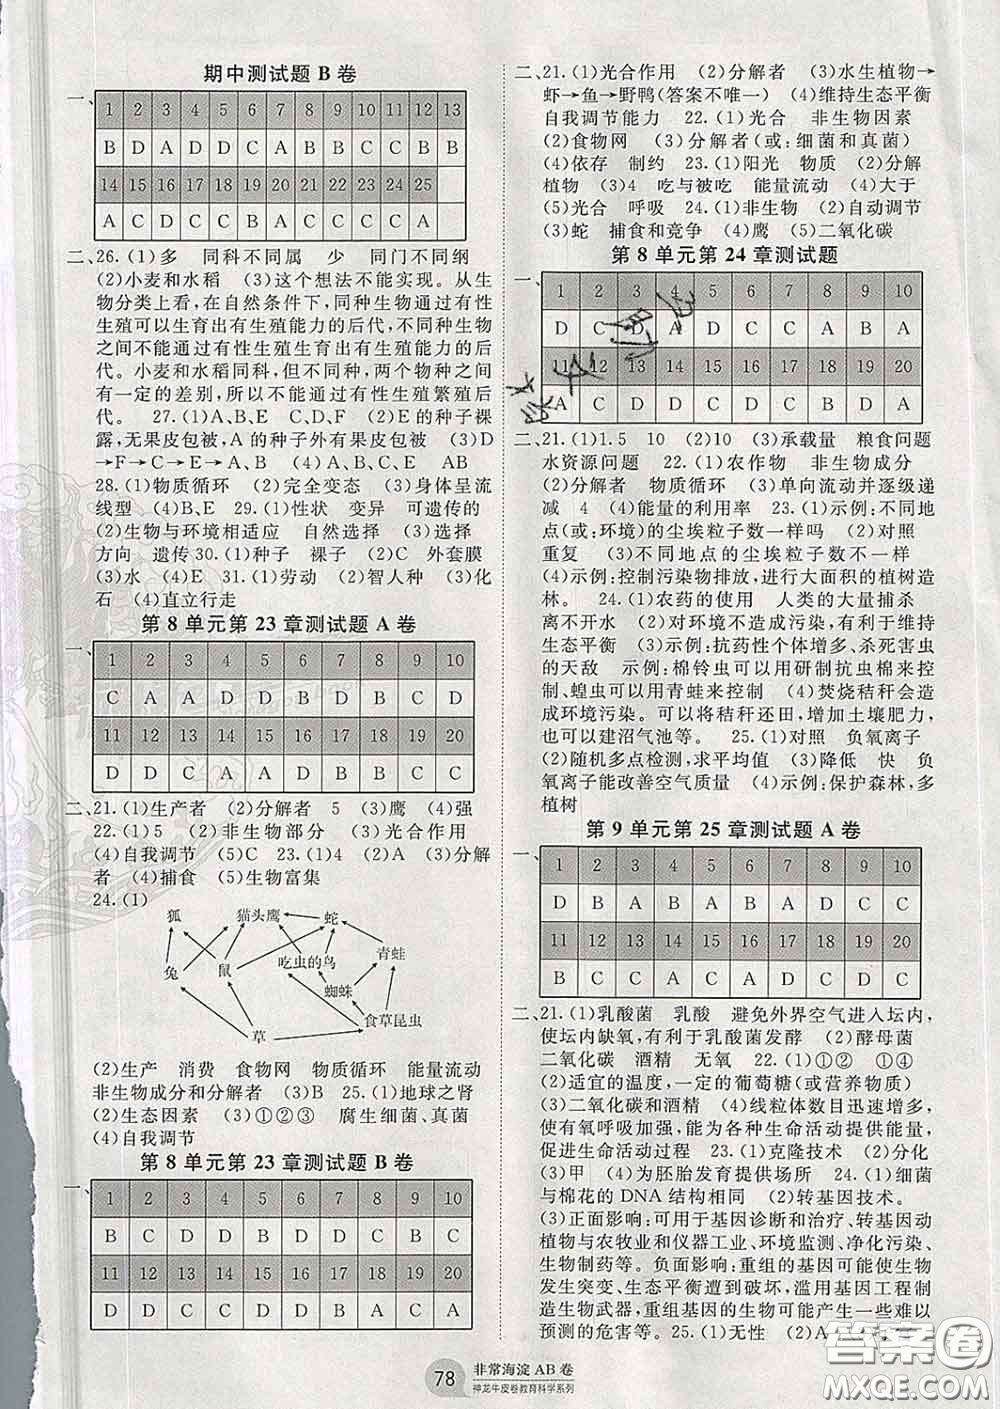 期中测试题 B 卷
一、
1 2 3 4 5 6 7 8 9 10 11 12 13
B D A D D C A B B C C B B
14 15 16 17 18 19 20 21 22 23 24 25
A C D C C B A C C C C A
二、26.(1)多 同科不同属 少 同门不同纲
(2)小麦和水稻 (3)这个想法不能实现。从生
物分类上看,在自然条件下,同种生物通过有性
生殖可以生育出有生殖能力的后代,不同种生物
之间不能通过有性生殖生育出有生殖能力的后
代。小麦和水稻同科,但不同种,两个物种之间
有一定的差别,所以不能通过有性生殖繁殖后
代。 27.(1)A、B、E C、D、F (2)E的种子裸
露,无果皮包被,A的种子外有果皮包被 (3)D
→F→C→E→A→B (4)A、B、C、E AB
28.(1)物质循环 (2)完全变态 (3)身体呈流
线型 (4)B、E 29.(1)性状 变异 可遗传的
(2)生物与环境相适应 自然选择 (3)选择
方向 遗传 30.(1)种子 裸子 (2)C 外套膜
(3)水 (4)E 31.(1)劳动 (2)智人种 (3)化
石 (4)直立行走
第 8 单元第 23 章测试题 A 卷
一、
1 2 3 4 5 6 7 8 9 10
C A A D D B D B C D
11 12 13 14 15 16 17 18 19 20
D D C A D C D B C D
二、21.(1)生产者 (2)分解者 5 (3)鹰 (4)强
22.(1)5 (2)非生物部分 (3)光合作用
(4)自我调节 (5)C 23.(1)4 (2)C (3)分解
者 (4)捕食 (5)生物富集
24.(1)
狐 猫头鹰 蛇
青蛙
兔 鼠 吃虫的鸟
蜘蛛
草 食草昆虫
(2)生产 消费 食物网 物质循环 能量流动
非生物成分和分解者 (3)B 25.(1)地球之肾
(2)生态因素 (3)①②③ 腐生细菌、真菌
(4)自我调节
第 8 单元第 23 章测试题 B 卷
一、
1 2 3 4 5 6 7 8 9 10
B C D D B D B C C C
11 12 13 14 15 16 17 18 19 20
D D C C D D B A C A
二、21.(1)光合作用 (2)分解者 (3)水生植物→
虾→鱼→野鸭(答案不唯一) (4)维持生态平衡
自我调节能力 22.(1)光合 非生物因素
(2)食物网 (3)分解者(或:细菌和真菌)
(4)依存 制约 23.(1)阳光 物质 (2)分解
植物 (3)4 吃与被吃 能量流动 (4)大于
(5)光合 呼吸 24.(1)非生物 (2)自动调节
(3)蛇 捕食和竞争 (4)鹰 (5)二氧化碳
第 8 单元第 24 章测试题
一、
1 2 3 4 5 6 7 8 9 10
D C D A D C C A B A
11 12 13 14 15 16 17 18 19 20
A C D D C D C B D A
二、21.(1)1.5 10 (2)10 (3)承载量 粮食问题
水资源问题 22.(1)农作物 非生物成分
(2)分解者 物质循环 (3)单向流动并逐级递
减 4 (4)能量的利用率 23.(1)示例:不同地
点(或:环境)的尘埃粒子数一样吗 (2)对照
重复 (3)不同地点的尘埃粒子数不一样
(4)示例:控制污染物排放,进行大面积的植树造
林。 24.(1)农药的使用 人类的大量捕杀
离不开水 (2)对环境不造成污染,有利于维持
生态平衡 (3)示例:抗药性个体增多、杀死害虫
的天敌 示例:棉铃虫可以用研制抗虫棉来控
制、蝗虫可以用青蛙来控制 (4)焚烧秸秆会造
成环境污染。可以将秸秆还田,增加土壤肥力,
也可以建沼气池等。 25.(1)对照 负氧离子
(2)随机多点检测,求平均值 (3)降低 快 负
氧离子能改善空气质量 (4)示例:保护森林,多
植树
第 9 单元第 25 章测试题 A 卷
一、
1 2 3 4 5 6 7 8 9 10
D B A B A B A D C C
11 12 13 14 15 16 17 18 19 20
B C C A C A D C D C
二、21.(1)乳酸菌 乳酸 避免外界空气进入坛内,
使坛内缺氧,有利于乳酸菌发酵 (2)酵母菌
二氧化碳 酒精 无氧 22.(1)①② ①④
(2)适宜的温度,一定的葡萄糖(或营养物质)
(3)二氧化碳和酒精 (4)线粒体数目迅速增多,
使有氧呼吸加强,为各种生命活动提供能量,
促进生命活动过程 23.(1)克隆技术 (2)分化
(3)甲 (4)为胚胎发育提供场所 24.(1)细菌
与棉花的 DNA 结构相同 (2)转基因技术。
(3)正面影响:可用于基因诊断和治疗、转变动
植物与农牧业和仪器工业、环境监测、净化污染、
生物制药等。负面影响:重组的基因可能使生物
发生突变、生态平衡遭到破坏,滥用基因工程制
造生物武器,重组基因的生物可能产生一些难以
预测的危害等。25.(1)无性 (2)A
78 非常海淀 AB 卷
神龙牛皮卷教育科学系列
答案圈
MXQE.COM